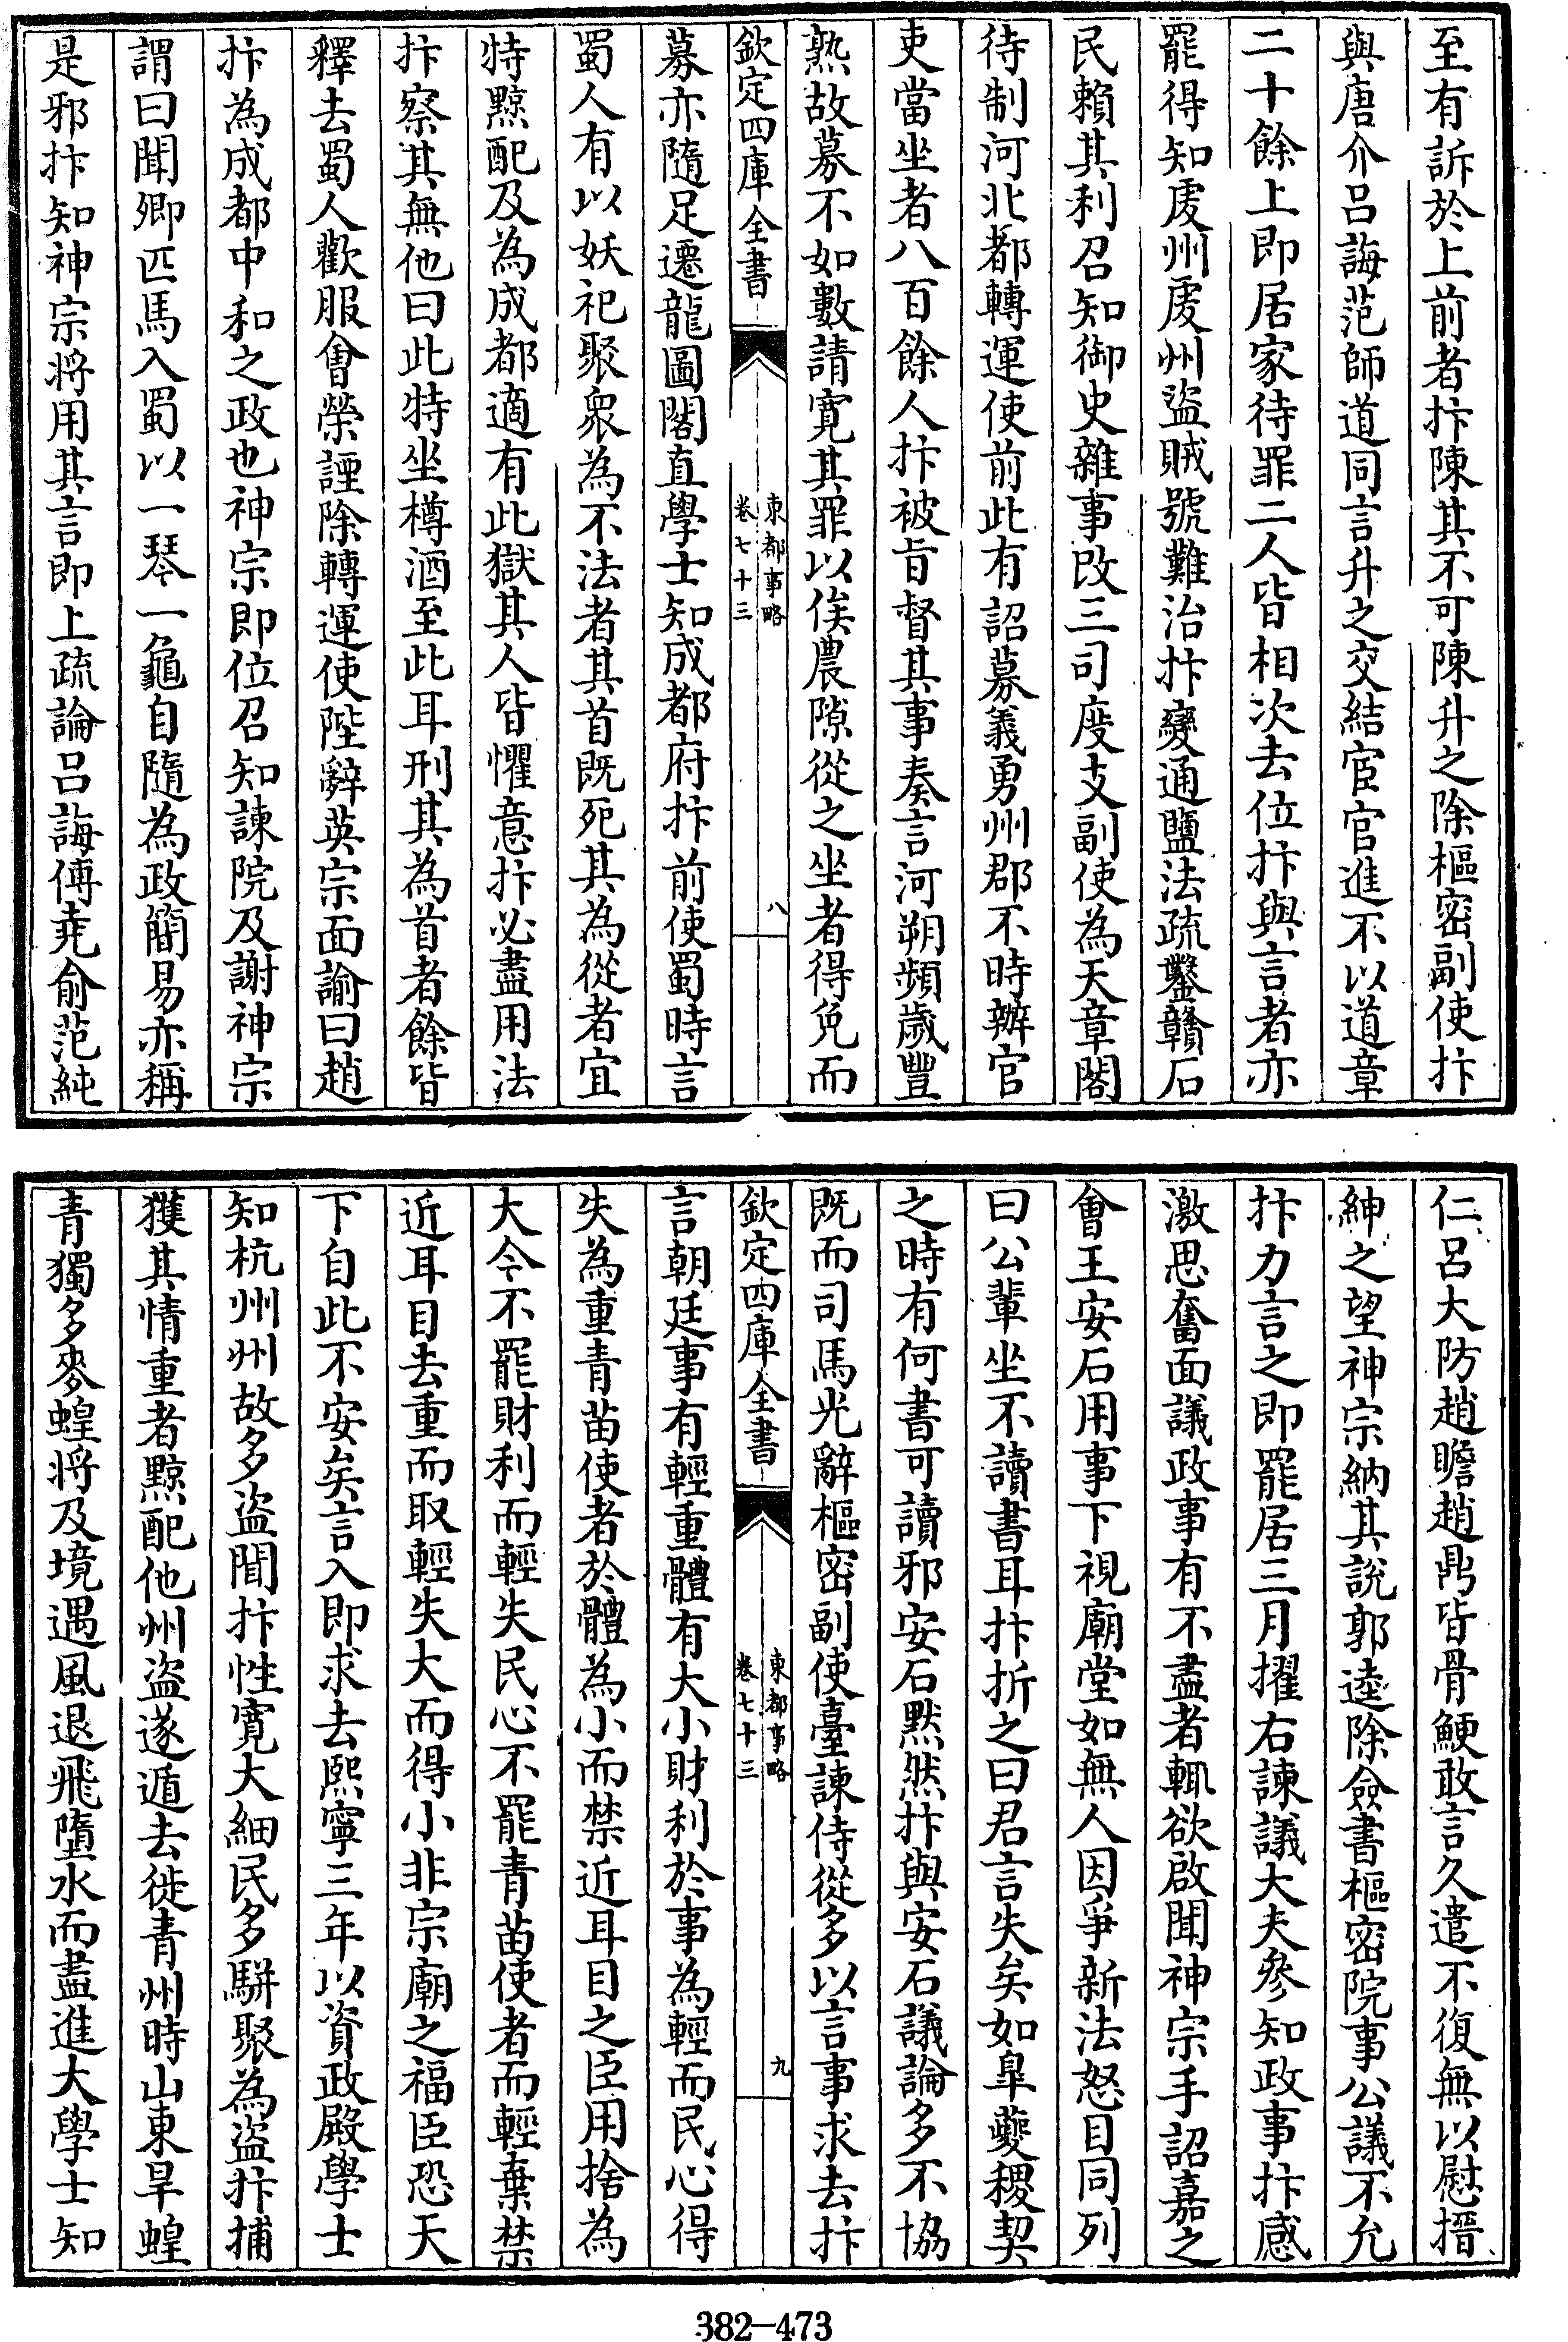 至有訴於上前者抃陳其不可陳升之除樞密副使抃
與唐介呂誨范師道同言升之交結宦官進不以道章
二十餘上即居家待罪二人皆相次去位抃與言者亦
罷得知䖍州䖍州盜賊號難治抃變通鹽法疏鑿贛石
民賴其利召知御史雜事改三司度支副使為天章閣
待制河北都轉運使前此有詔募義勇州郡不時辦官
吏當坐者八百餘人抃被旨督其事奏言河朔頻歲豐
熟故募不如數請寬其罪以俟農隙從之坐者得免而
欽定四庫全書
東都事略
卷七十三
八
募亦隨足遷龍圖閣直學士知成都府抃前使蜀時言
蜀人有以妖祀聚衆為不法者其首既死其為從者宜
特黥配及為成都適有此獄其人皆懼意抃必盡用法
抃察其無他曰此特坐樽酒至此耳刑其為首者餘皆
釋去蜀人歡服會榮諲除轉運使陛辭英宗面諭曰趙
抃為成都中和之政也神宗即位召知諫院及謝神宗
謂曰聞卿匹馬入蜀以一琴一龜自隨為政簡易亦稱
是邪抃知神宗將用其言即上疏論呂誨傅堯俞范純
仁呂大防趙瞻趙鼎皆骨鯁敢言久遣不復無以慰搢
紳之望神宗納其說郭逵除僉書樞密院事公議不允
抃力言之即罷居三月擢右諫議大夫參知政事抃感
激思奮面議政事有不盡者輒欲啟聞神宗手詔嘉之
會王安石用事下視廟堂如無人因爭新法怒目同列
曰公輩坐不讀書耳抃折之曰君言失矣如臯夔稷契
之時有何書可讀邪安石默然抃與安石議論多不協
既而司馬光辭樞密副使臺諫侍從多以言事求去抃
欽定四庫全書
東都事略
卷七十三
九
言朝廷事有輕重體有大小財利於事為輕而民心得
失為重青苗使者於體為小而禁近耳目之臣用捨為
大今不罷財利而輕失民心不罷青苗使者而輕棄禁
近耳目去重而取輕失大而得小非宗廟之福臣恐天
下自此不安矣言入即求去熙寧三年以資政殿學士
知杭州州故多盜聞抃性寬大細民多駢聚為盜抃捕
獲其情重者黥配他州盜遂遁去徙青州時山東旱蝗
青獨多麥蝗將及境遇風退飛墮水而盡進大學士知
382-473